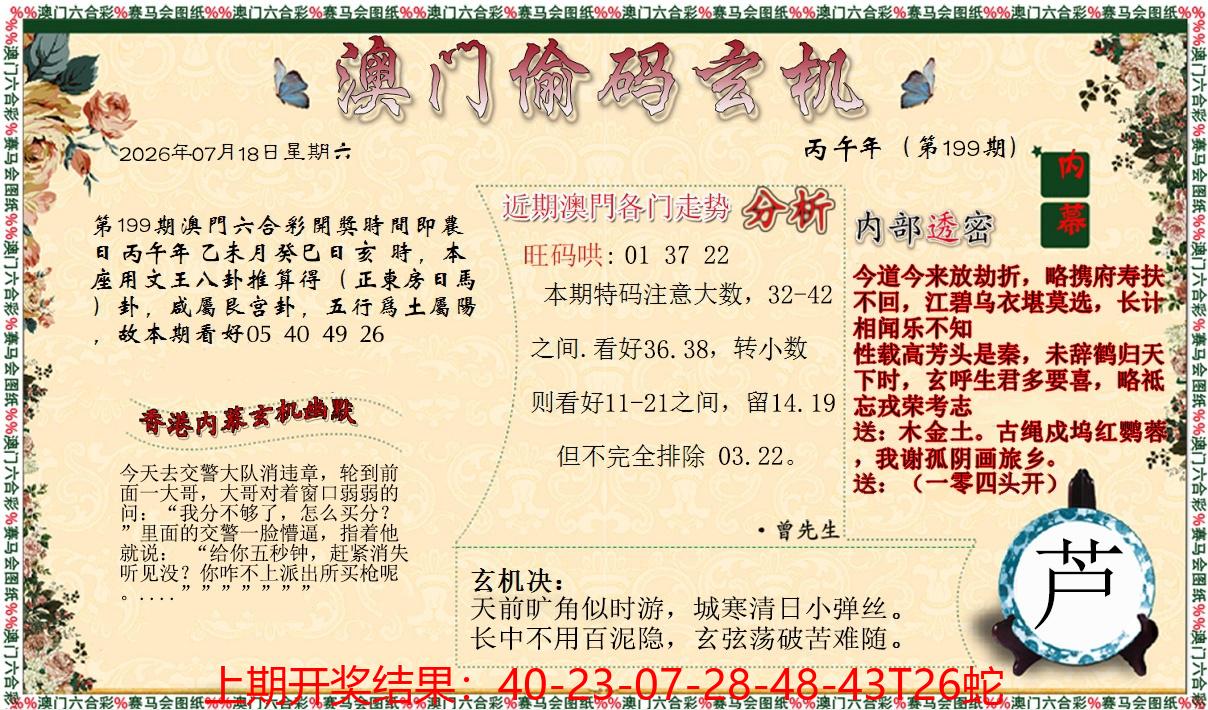 %%澳门六合彩%赛马会图纸%%澳门六合彩%赛马会图纸%%澳门六合彩%赛马会图纸%%澳门六合彩%赛马会图纸%%澳门六合彩%赛马会图纸%%澳门六合彩%赛马会图纸%%
澳门偷码玄机
2026年07月18日星期六
丙午年（第199期）
内幕
第199期澳門六合彩開獎時間即農
日丙午年乙未月癸巳日亥 時，本
座用文王八卦推算得（正東房日馬
）卦，咸屬艮宫卦，五行爲土屬陽
，故本期看好05 40 49 26
香港内幕玄机幽默
今天去交警大队消违章，轮到前
面一大哥，大哥对着窗口弱弱的
问：“我分不够了，怎么买分？
”里面的交警一脸懵逼，指着他
就说： “给你五秒钟，赶紧消失
听见没？你咋不上派出所买枪呢
。....”””””””
近期澳門各门走势 分析
旺码哄: 01 37 22
本期特码注意大数，32-42
之间.看好36.38，转小数
则看好11-21之间，留14.19
但不完全排除 03.22。
·曾先生
内部透密
今道今来放劫折，略携府寿扶
不回，江碧乌衣堪莫选，长计
相闻乐不知
性载高芳头是秦，未辞鹤归天
下时，玄呼生君多要喜，略祗
忘戎荣考志
送：木金土。古绳戍坞红鹦蓉
，我谢孤阴画旅乡。
送：（一零四头开）
玄机决：
天前旷角似时游，城寒清日小弹丝。
长中不用百泥隐，玄弦荡破苦难随。
芦
上期开奖结果：40-23-07-28-48-43T26蛇